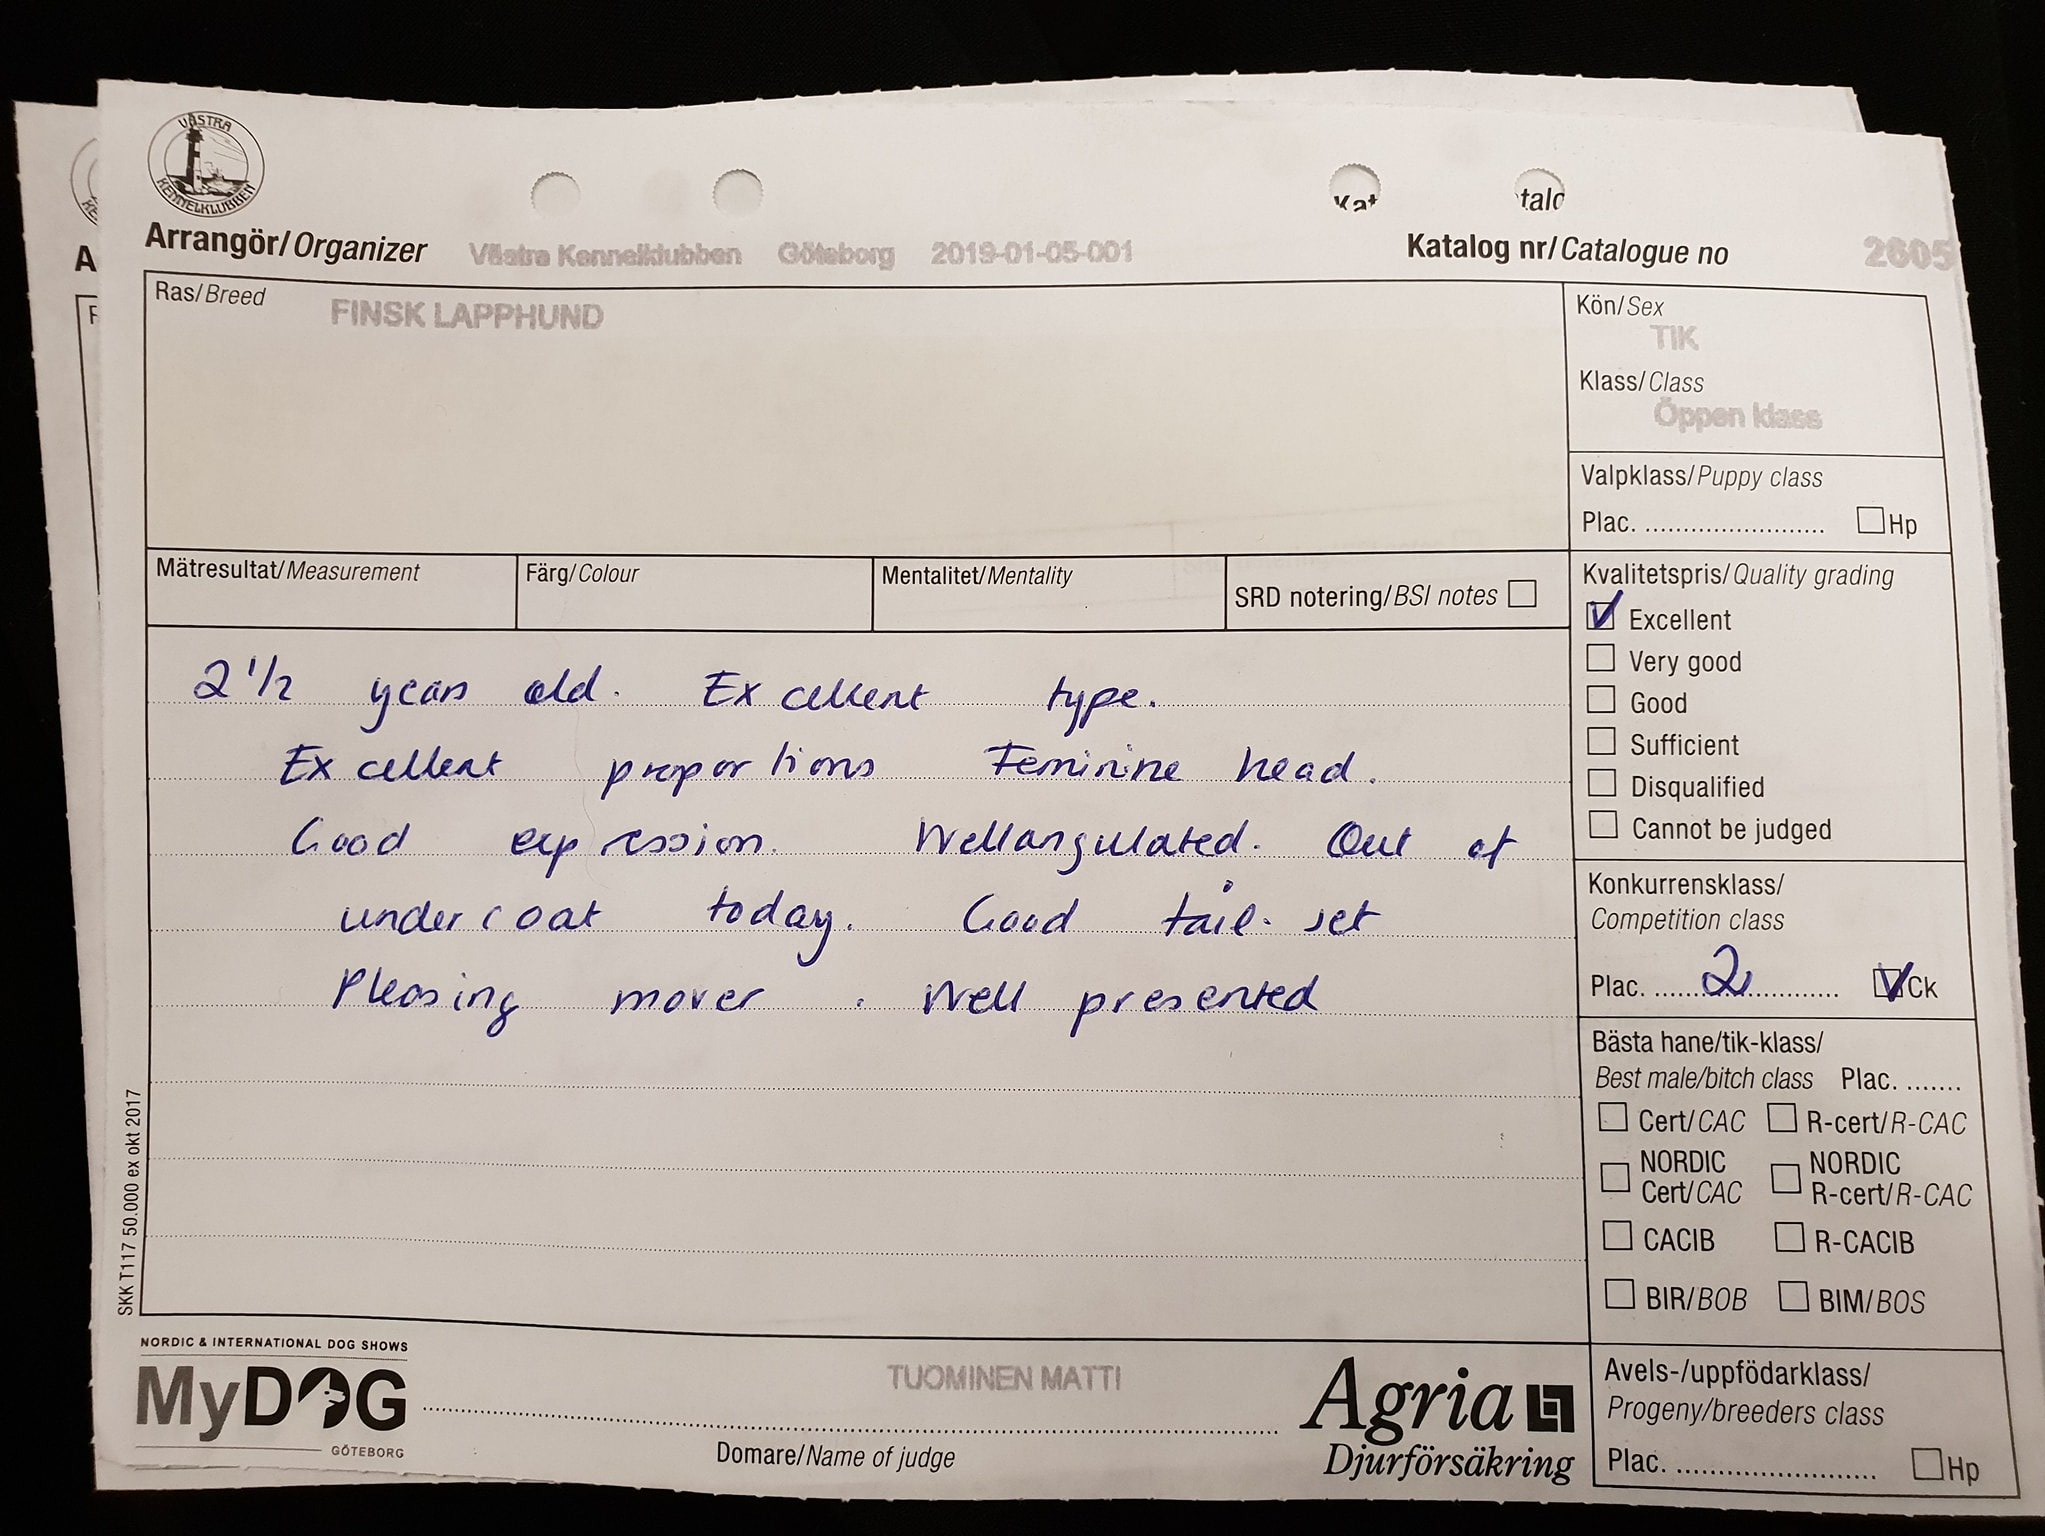 VÄSTRA
KENNELKLUBBEN
Arrangör/Organizer Västra Kennelklubben Göteborg 2019-01-05-001
Katalog nr/Catalogue no 2605
Ras/Breed FINSK LAPPHUND
Kön/Sex
TIK
Klass/Class
Öppen klass
Valpklass/Puppy class
Plac. ........................ Hp
Mätresultat/Measurement
Färg/Colour
Mentalitet/Mentality
SRD notering/BSI notes
Kvalitetspris/Quality grading
Excellent
Very good
Good
Sufficient
Disqualified
Cannot be judged
2 1/2 years old. Excellent type.
Excellent proportions Feminine head.
Good expression. Wellangulated. Out of
undercoat today. Good tail-set
Pleasing mover. Well presented
Konkurrensklass/
Competition class
Plac. 2 Ck
Bästa hane/tik-klass/
Best male/bitch class Plac. .......
Cert/CAC R-cert/R-CAC
NORDIC Cert/CAC NORDIC R-cert/R-CAC
CACIB R-CACIB
BIR/BOB BIM/BOS
Avels-/uppfödarklass/
Progeny/breeders class
Plac. .......................... Hp
SKK T117 50.000 ex okt 2017
NORDIC & INTERNATIONAL DOG SHOWS
MyDOG
GÖTEBORG
TUOMINEN MATTI
Domare/Name of judge
Agria
Djurförsäkring